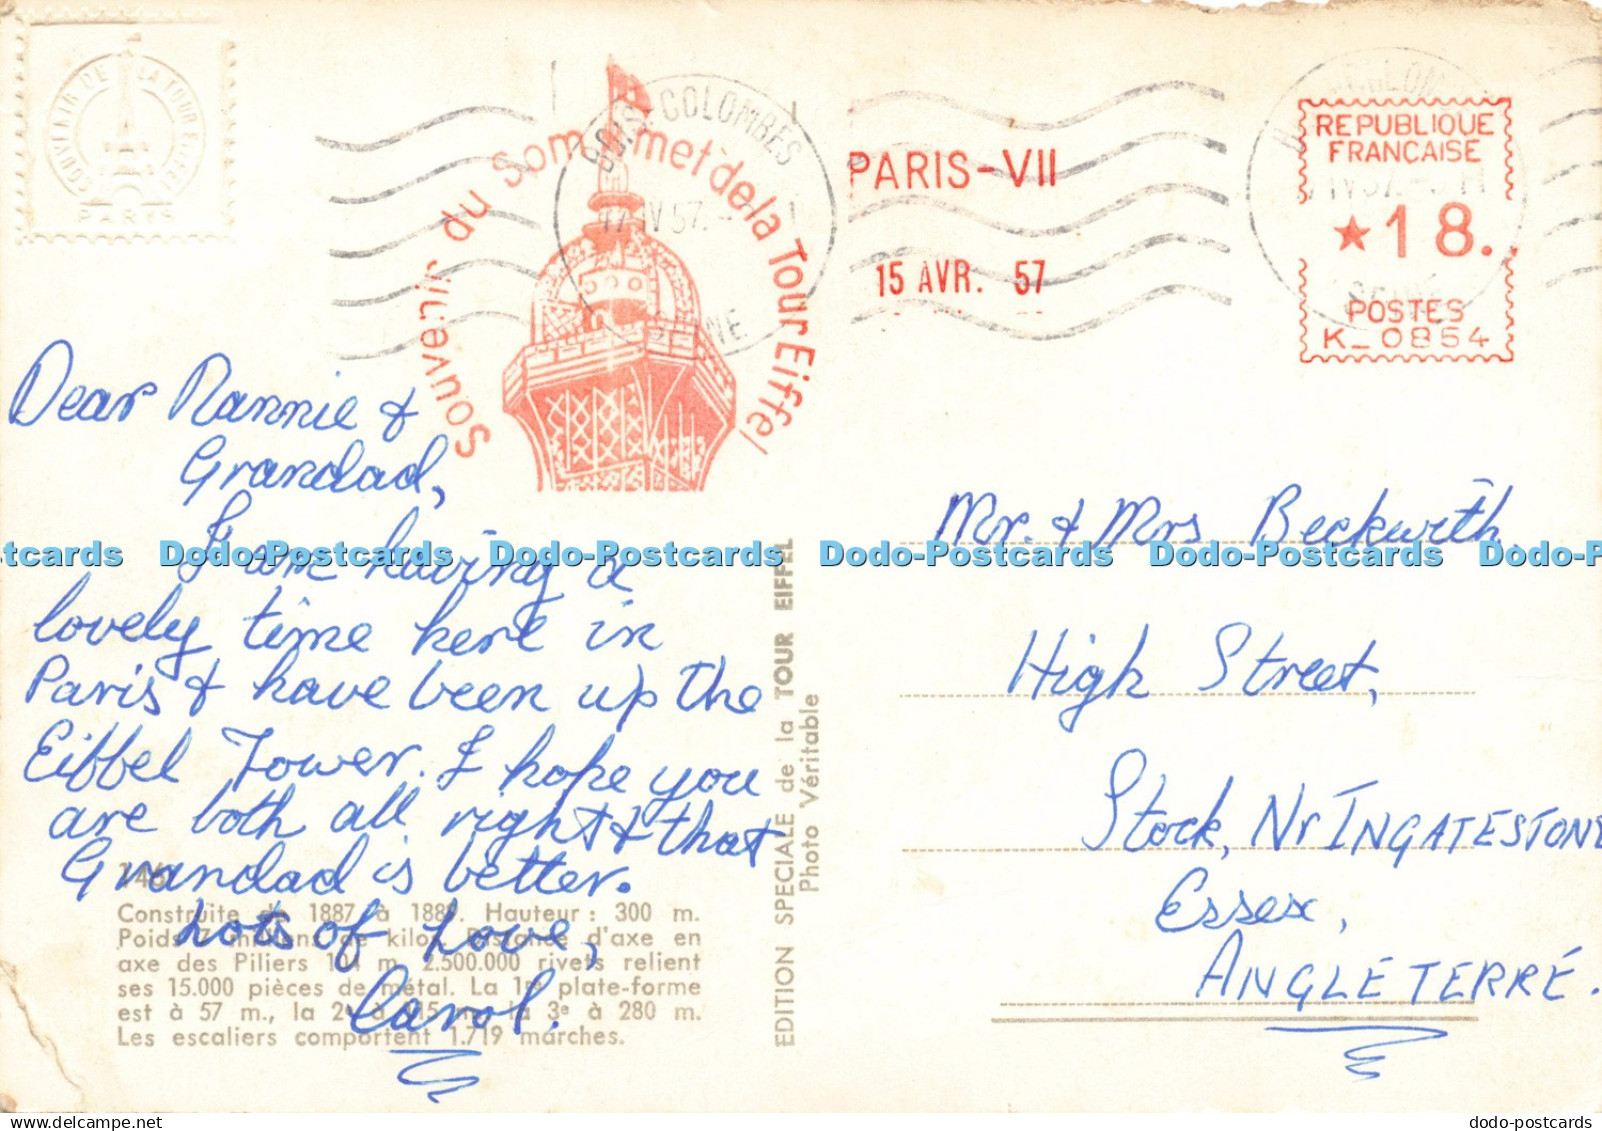 SOUVENIR DE LA TOUR EIFFEL
PARIS
Souvenir du Sommet de la Tour Eiffel
BOIS-COLOMBES
17 IV 57
SEINE
PARIS-VII
15 AVR. 57
REPUBLIQUE
FRANCAISE
★18.
POSTES
K_0854
Dear Nannie &
Grandad,
I am having a
lovely time here in
Paris & have been up the
Eiffel Tower. I hope you
are both all right & that
Grandad is better.
Lots of Love,
Carol.
146
Construite de 1887 à 1889. Hauteur : 300 m.
Poids 7 millions de kilos. Distance d'axe en
axe des Piliers 104 m. 2.500.000 rivets relient
ses 15.000 pièces de métal. La 1re plate-forme
est à 57 m., la 2e à 115 m., la 3e à 280 m.
Les escaliers comportent 1.719 marches.
EDITION SPECIALE de la TOUR EIFFEL
Photo Véritable
Mr. & Mrs Beckwith,
High Street,
Stock, Nr INGATESTONE
Essex,
ANGLETERRÉ.
tcards Dodo-Postcards Dodo-Postcards Dodo-Postcards Dodo-Postcards Dodo-P
dodo-postcards